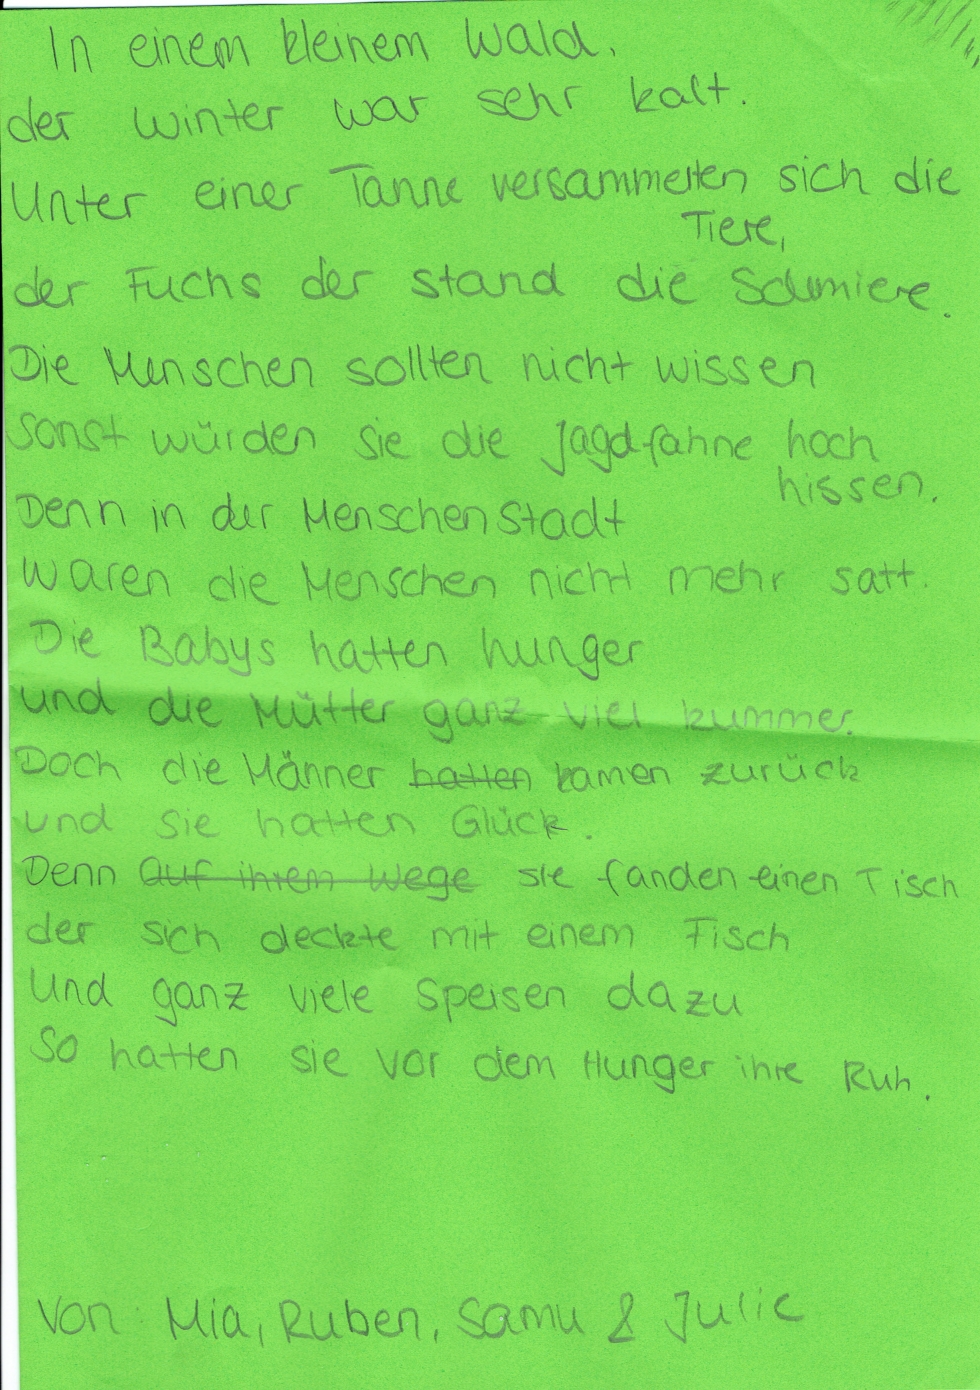 In einem kleinem Wald.
der Winter war sehr kalt.
Unter einer Tanne versammelten sich die
Tiere,
der Fuchs der stand die Schmiere.
Die Menschen sollten nicht wissen
sonst würden sie die Jagdfahne hoch
hissen.
Denn in der Menschenstadt
waren die Menschen nicht mehr satt.
Die Babys hatten hunger
und die Mütter ganz viel kummer.
Doch die Männer hatten kamen zurück
und sie hatten Glück.
Denn Auf ihrem Wege sie fanden einen Tisch
der sich deckte mit einem Fisch
Und ganz viele Speisen dazu
So hatten sie vor dem Hunger ihre Ruh.
Von: Mia, Ruben, Samu & Julie